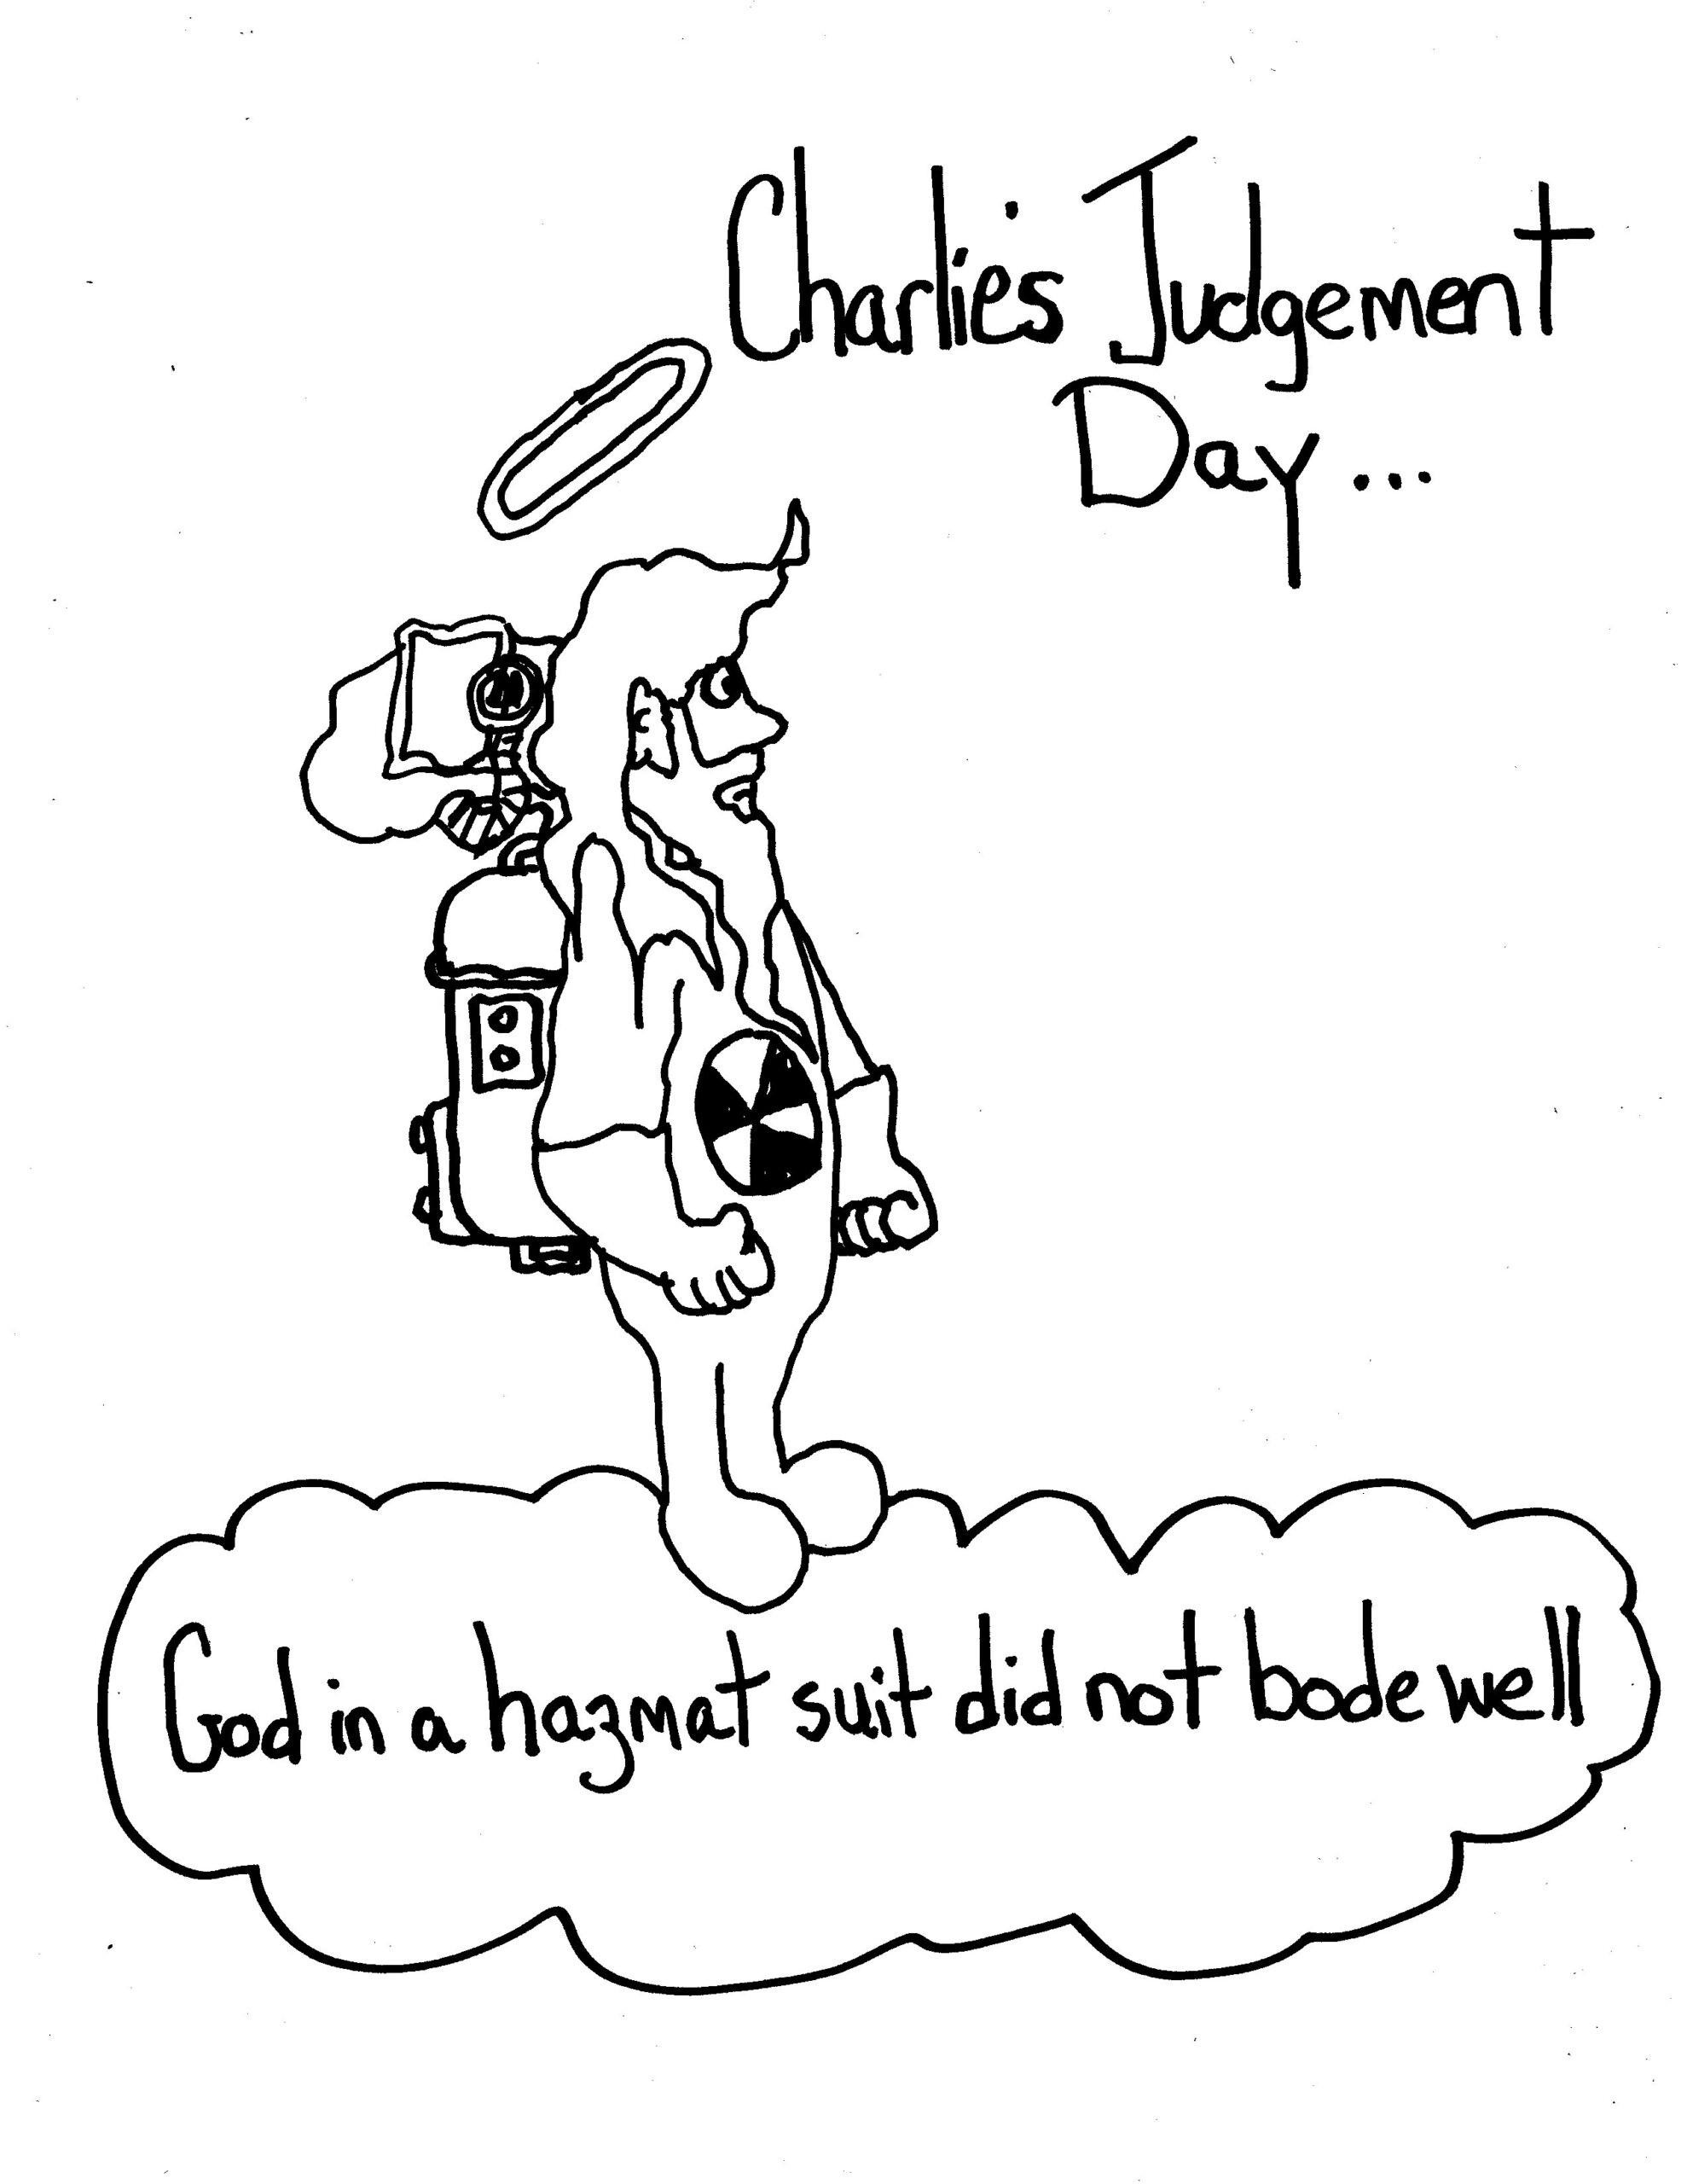 Charlie's Judgement
Day...
God in a hazmat suit did not bode well